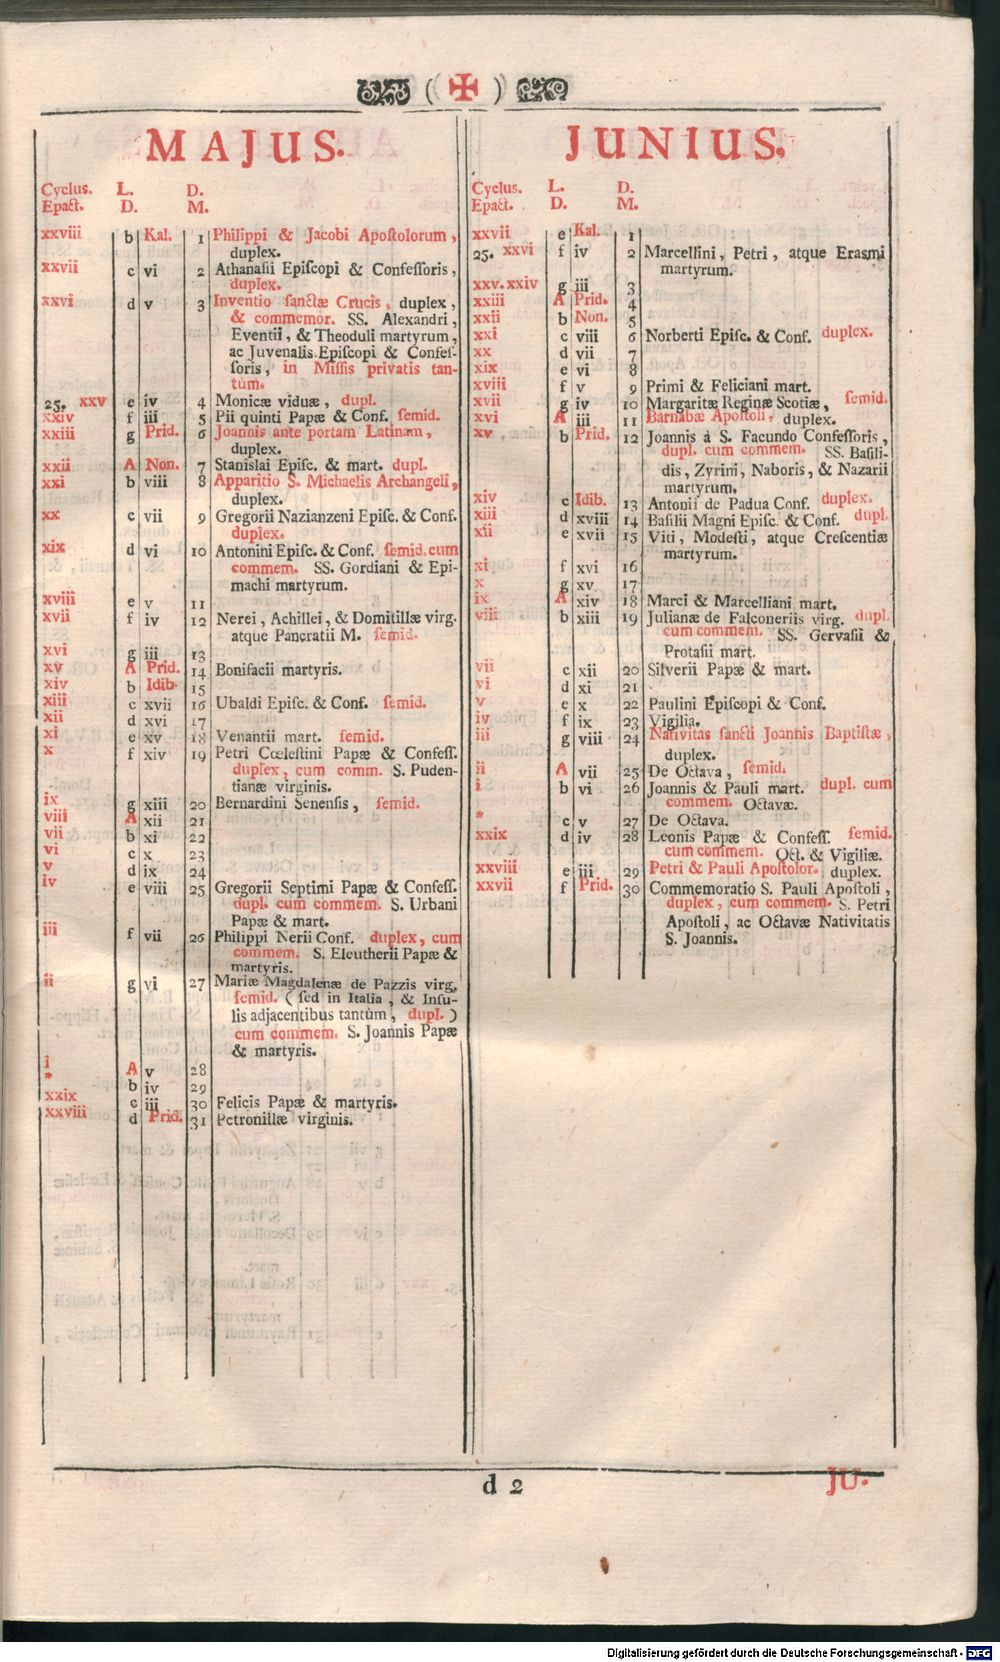 ( ✠ )
MAJUS.
Cyclus. L. D.
Epact. D. M.
xxviii b Kal. 1 Philippi & Jacobi Apoſtolorum,
duplex.
xxvii c vi 2 Athanaſii Epiſcopi & Confeſſoris,
duplex.
xxvi d v 3 Inventio ſanctæ Crucis, duplex,
& commemor. SS. Alexandri,
Eventii, & Theoduli martyrum,
ac Juvenalis Epiſcopi & Confeſ-
ſoris, in Miſſis privatis tan-
tùm.
25. xxv e iv 4 Monicæ viduæ, dupl.
xxiv f iii 5 Pii quinti Papæ & Conf. ſemid.
xxiii g Prid. 6 Joannis ante portam Latinam,
duplex.
xxii A Non. 7 Stanislai Epiſc. & mart. dupl.
xxi b viii 8 Apparitio S. Michaelis Archangeli,
duplex.
xx c vii 9 Gregorii Nazianzeni Epiſc. & Conf.
duplex.
xix d vi 10 Antonini Epiſc. & Conf. ſemid. cum
commem. SS. Gordiani & Epi-
machi martyrum.
xviii e v 11
xvii f iv 12 Nerei, Achillei, & Domitillæ virg.
atque Pancratii M. ſemid.
xvi g iii 13
xv A Prid. 14 Bonifacii martyris.
xiv b Idib. 15
xiii c xvii 16 Ubaldi Epiſc. & Conf. ſemid.
xii d xvi 17
xi e xv 18 Venantii mart. ſemid.
x f xiv 19 Petri Cœleſtini Papæ & Confeſſ.
duplex, cum comm. S. Puden-
tianæ virginis.
ix g xiii 20 Bernardini Senenſis, ſemid.
viii A xii 21
vii b xi 22
vi c x 23
v d ix 24
iv e viii 25 Gregorii Septimi Papæ & Confeſſ.
dupl. cum commem. S. Urbani
Papæ & mart.
iii f vii 26 Philippi Nerii Conf. duplex, cum
commem. S. Eleutherii Papæ &
martyris.
ii g vi 27 Mariæ Magdalenæ de Pazzis virg.
ſemid. (ſed in Italia, & Inſu-
lis adjacentibus tantùm, dupl.)
cum commem. S. Joannis Papæ
& martyris.
i A v 28
* b iv 29
xxix c iii 30 Felicis Papæ & martyris.
xxviii d Prid. 31 Petronillæ virginis.
JUNIUS.
Cyclus. L. D.
Epact. D. M.
xxvii e Kal. 1
25. xxvi f iv 2 Marcellini, Petri, atque Eraſmi
martyrum.
xxv. xxiv g iii 3
xxiii A Prid. 4
xxii b Non. 5
xxi c viii 6 Norberti Epiſc. & Conf. duplex.
xx d vii 7
xix e vi 8
xviii f v 9 Primi & Feliciani mart.
xvii g iv 10 Margaritæ Reginæ Scotiæ, ſemid.
xvi A iii 11 Barnabæ Apoſtoli, duplex.
xv b Prid. 12 Joannis à S. Facundo Confeſſoris,
dupl. cum commem. SS. Baſili-
dis, Zyrini, Naboris, & Nazarii
martyrum.
xiv c Idib. 13 Antonii de Padua Conf. duplex.
xiii d xviii 14 Baſilii Magni Epiſc. & Conf. dupl.
xii e xvii 15 Viti, Modeſti, atque Creſcentiæ
martyrum.
xi f xvi 16
x g xv 17
ix A xiv 18 Marci & Marcelliani mart.
viii b xiii 19 Julianæ de Falconeriis virg. dupl.
cum commem. SS. Gervaſii &
Protaſii mart.
vii c xii 20 Silverii Papæ & mart.
vi d xi 21
v e x 22 Paulini Epiſcopi & Conf.
iv f ix 23 Vigilia.
iii g viii 24 Nativitas ſancti Joannis Baptiſtæ,
duplex.
ii A vii 25 De Octava, ſemid.
i b vi 26 Joannis & Pauli mart. dupl. cum
commem. Octavæ.
* c v 27 De Octava.
xxix d iv 28 Leonis Papæ & Confeſſ. ſemid.
cum commem. Oct. & Vigiliæ.
xxviii e iii 29 Petri & Pauli Apoſtolor. duplex.
xxvii f Prid. 30 Commemoratio S. Pauli Apoſtoli,
duplex, cum commem. S. Petri
Apoſtoli, ac Octavæ Nativitatis
S. Joannis.
d 2
JU.
Digitalisierung gefördert durch die Deutsche Forschungsgemeinschaft - DFG